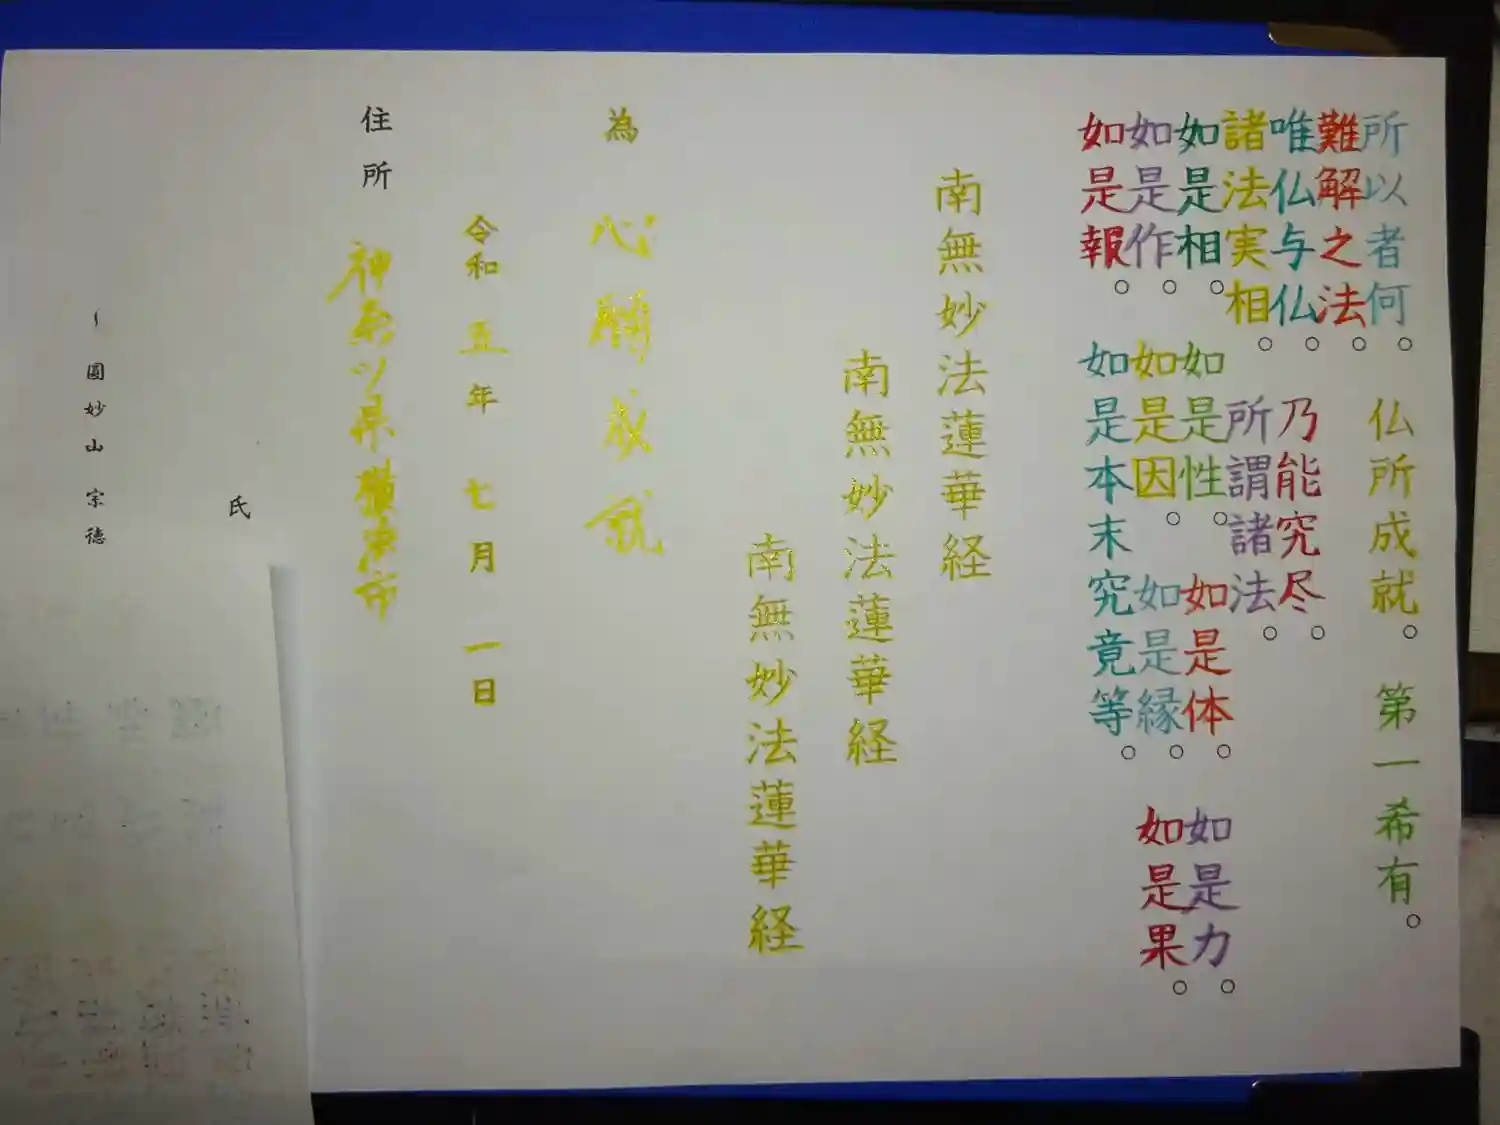 所以者何。仏所成就。第一希有。
難解之法。
唯仏与仏。乃能究尽。
諸法実相。所謂諸法。
如是相。如是性。如是体。如是力。
如是作。如是因。如是縁。如是果。
如是報。如是本末究竟等。
南無妙法蓮華経
南無妙法蓮華経
南無妙法蓮華経
為 心願成就
令和 五年 七月 一日
住所 神奈川県横浜市
氏
〜圓妙山 宗徳